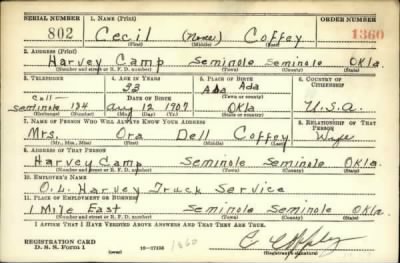 SERIAL NUMBER 1. NAME (Print) ORDER NUMBER
802 Cecil (None) Coffey 1360
(First) (Middle) (Last)
2. ADDRESS (Print)
Harvey Camp Seminole Seminole Okla.
(Number and street or R. F. D. number) (Town) (County) (State)
3. TELEPHONE 4. AGE IN YEARS 5. PLACE OF BIRTH 6. COUNTRY OF CITIZENSHIP
33 Ada Ada
Call- DATE OF BIRTH (Town or county)
Seminole 134 Aug 12 1907 Okla U.S.A.
(Exchange) (Number) (Mo.) (Day) (Yr.) (State or country)
7. NAME OF PERSON WHO WILL ALWAYS KNOW YOUR ADDRESS 8. RELATIONSHIP OF THAT PERSON
Mrs. Ora Dell Coffey Wife
(Mr., Mrs., Miss) (First) (Middle) (Last)
9. ADDRESS OF THAT PERSON
Harvey Camp Seminole Seminole Okla.
(Number and street or R. F. D. number) (Town) (County) (State)
10. EMPLOYER'S NAME
O.L. Harvey Truck Service
11. PLACE OF EMPLOYMENT OR BUSINESS
1 Mile East Seminole Seminole Okla.
(Number and street or R. F. D. number) (Town) (County) (State)
I AFFIRM THAT I HAVE VERIFIED ABOVE ANSWERS AND THAT THEY ARE TRUE.
REGISTRATION CARD
D. S. S. Form 1 16-17105 1360 C Coffey
(Registrant's signature)